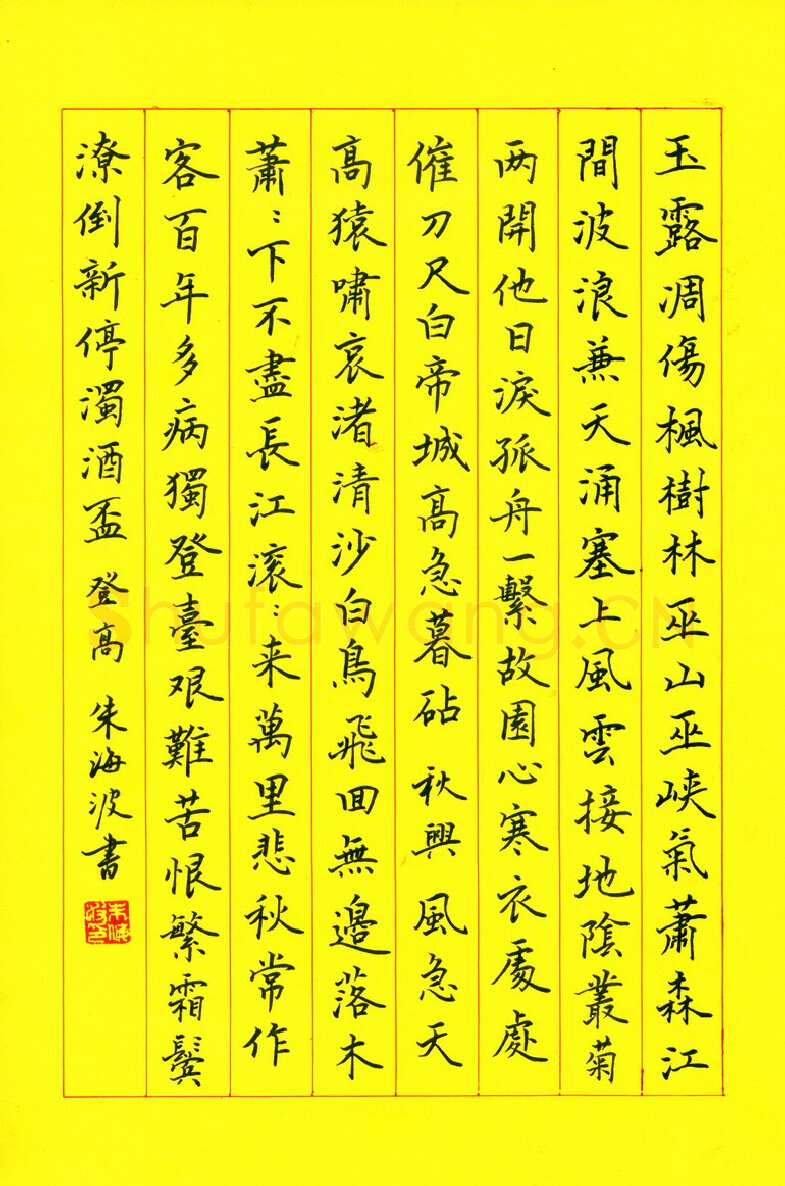 玉露凋傷楓樹林巫山巫峽氣蕭森江
間波浪兼天涌塞上風雲接地陰叢菊
两開他日淚孤舟一繫故園心寒衣處處
催刀尺白帝城高急暮砧 秋興 風急天
高猿嘯哀渚清沙白鳥飛回無邊落木
蕭：下不盡長江滚：来萬里悲秋常作
客百年多病獨登臺艰難苦恨繁霜鬓
潦倒新停濁酒盃 登高 朱海波書
shufawang.CN